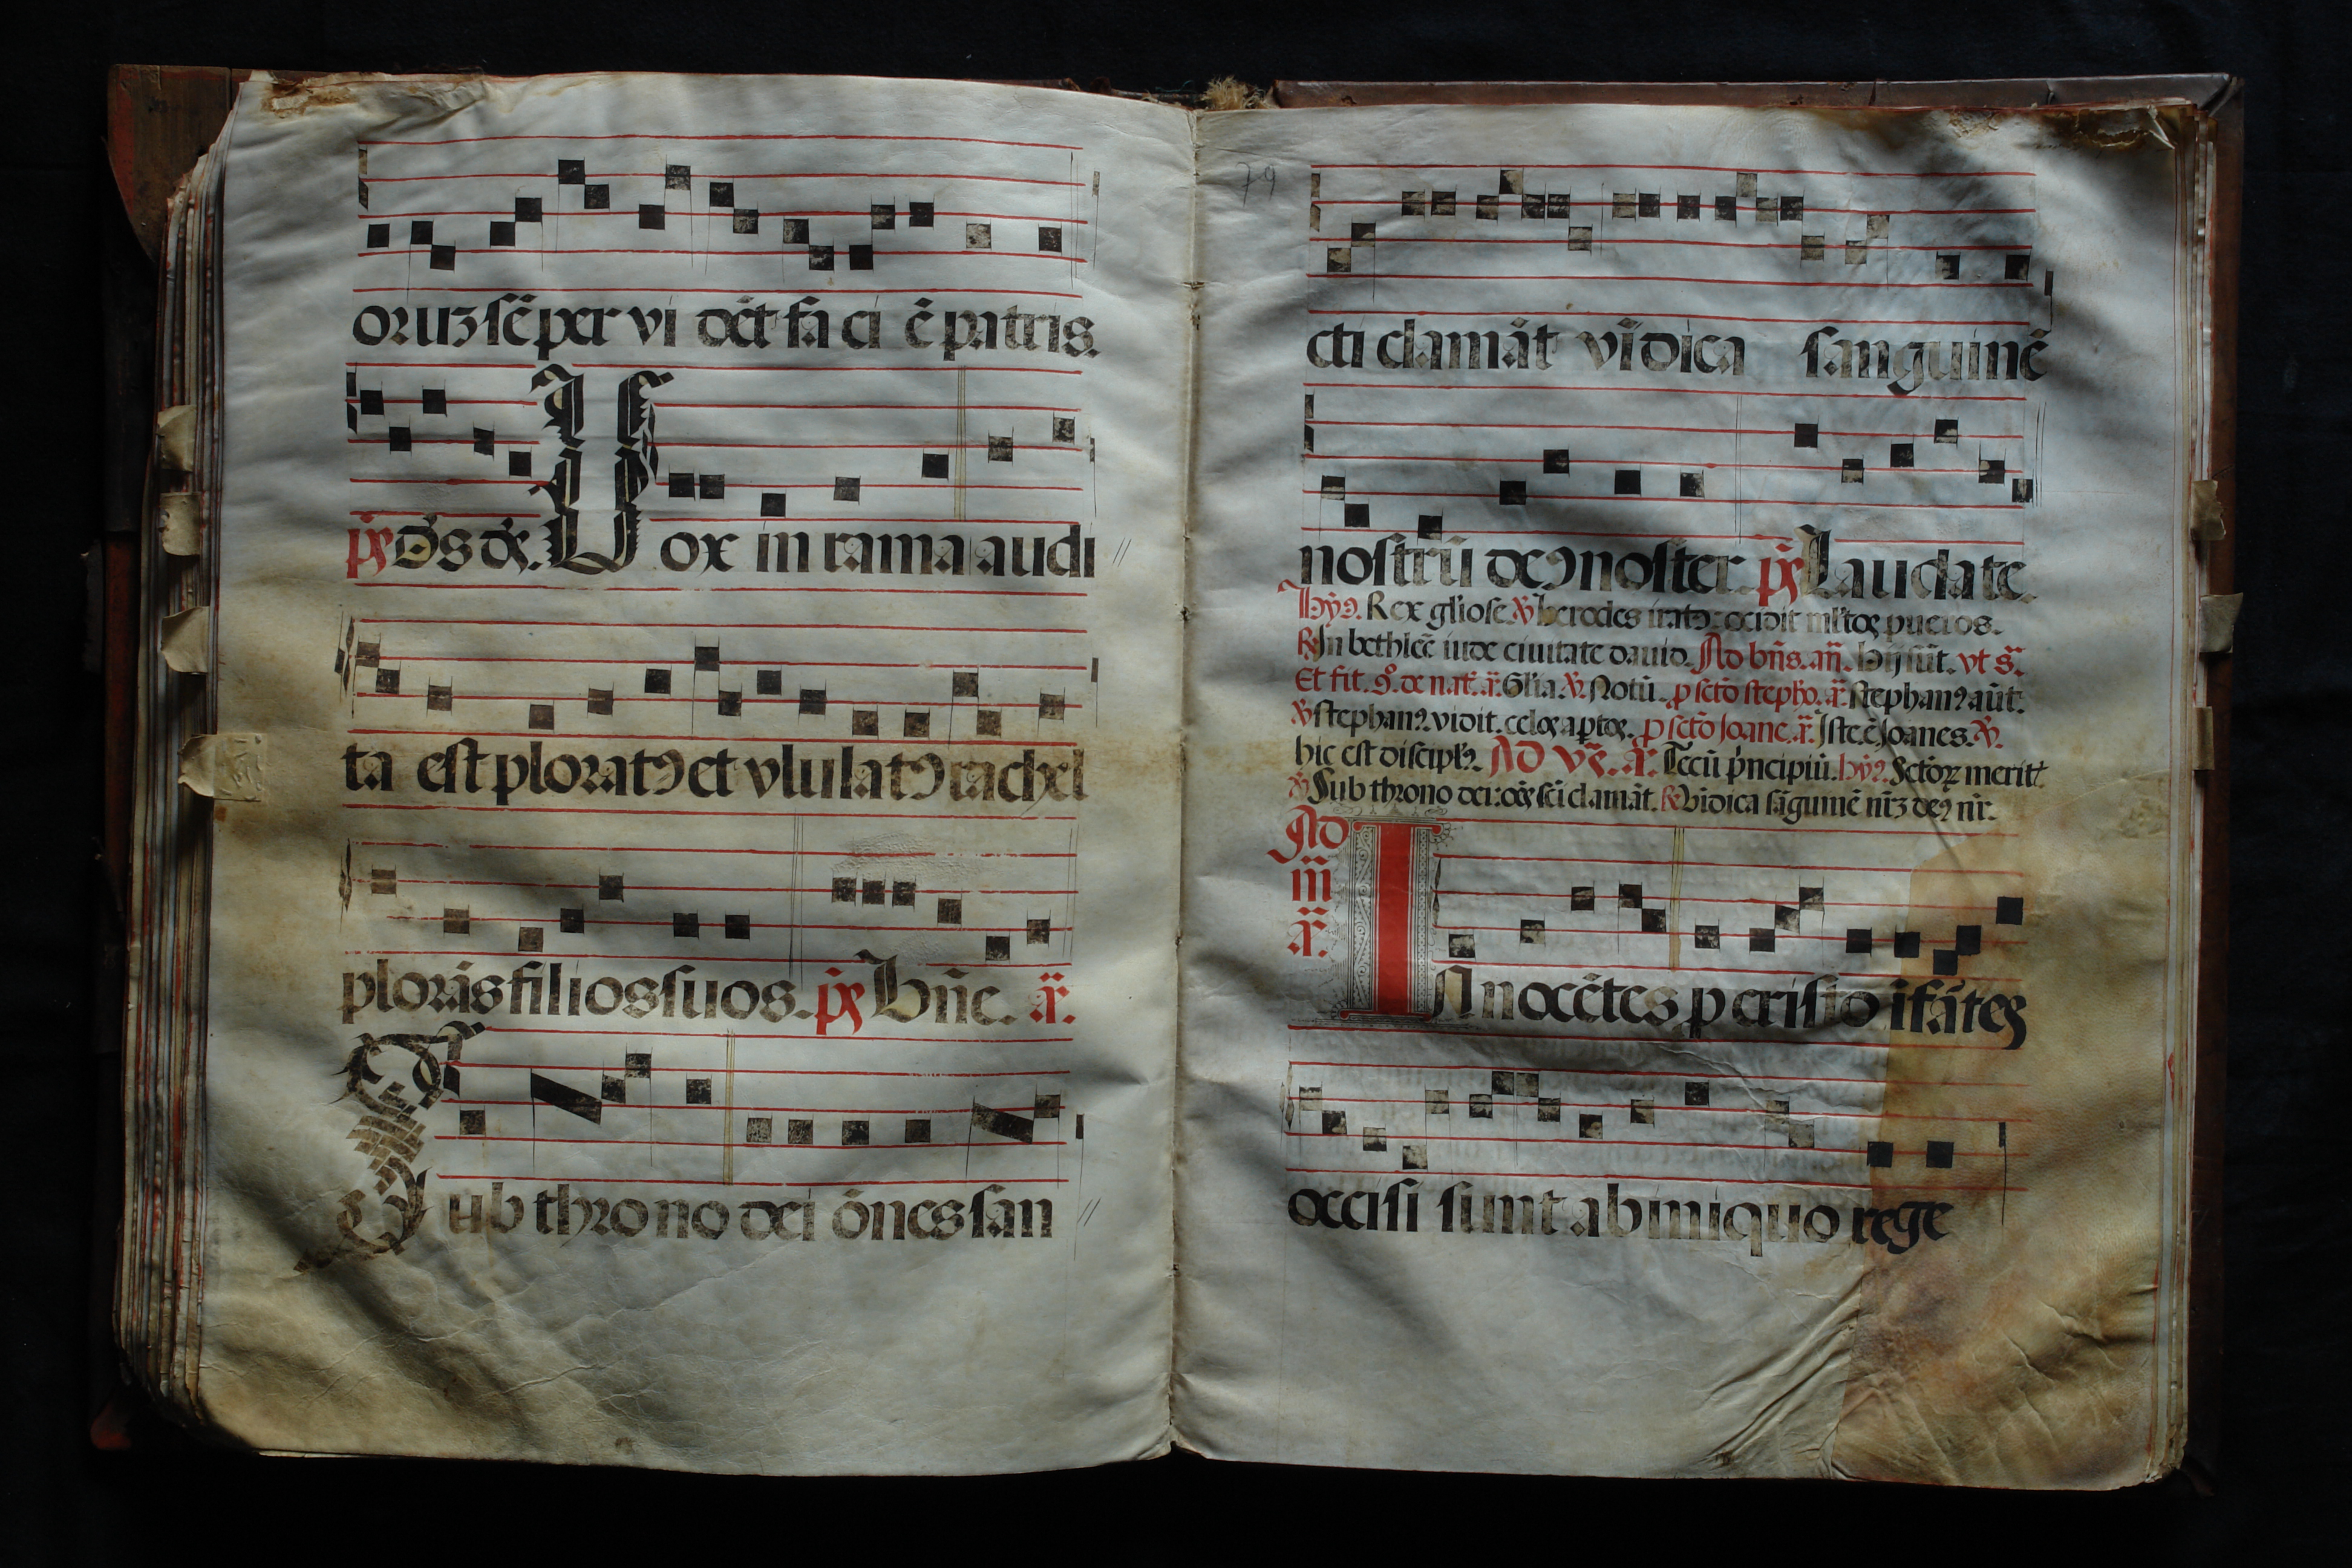 oruʒ sēper vi dēt fa ci ē patris.
p̄s D̄s ds. Vox in rama audi
ta est ploratꝰ et ululatꝰ rachel
plorās filios suos. p̄s Bn̄e. a͞.
Sub throno dei ōnes san
79
cti clamāt vīdica sanguinē
nostrū deꝰ noster. p̄s Laudate.
hȳꝰ. Rex gl'iose. ℣ herodes iratꝰ: occidit ml'tos pueros.
℟ In bethleē iude ciuitate dauid. Ad bn̄s. an̄. Hij sūt. vt s͞.
Et fit. 9°. de nat̄. a͞. Gl'ia. ℣. Notū. p sctō stepho. a͞. Stephanꝰ aūt.
℣ stephanꝰ. vidit. celos aptos. p sctō Joane. a͞. Iste ē Joanes. ℣.
hic est discipl'ꝰ. AD v͞s. a͞. Tecū p'ncipiū. hȳꝰ. Sctōꝝ meritꝭ
℣ Sub throno dei: oēs sci clamāt. ℟ Vīdica sāguinē nr̄ʒ deꝰ nr̄.
Ad
m̄
a͞.
INnocētes p cristo ifātes
occisi sunt ab iniquo rege